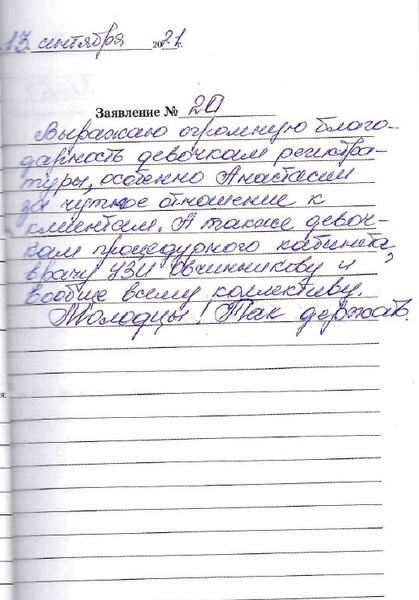 13 сентября 2021 г.
Заявление № 20
Выражаю огромную благо-
дарность девочкам регистра-
туры, особенно Анастасии
за чуткое отношение к
клиентам. А также девоч-
кам процедурного кабинета,
врачу УЗИ Овчинникову и
вообще всему коллективу.
Молодцы! Так держать